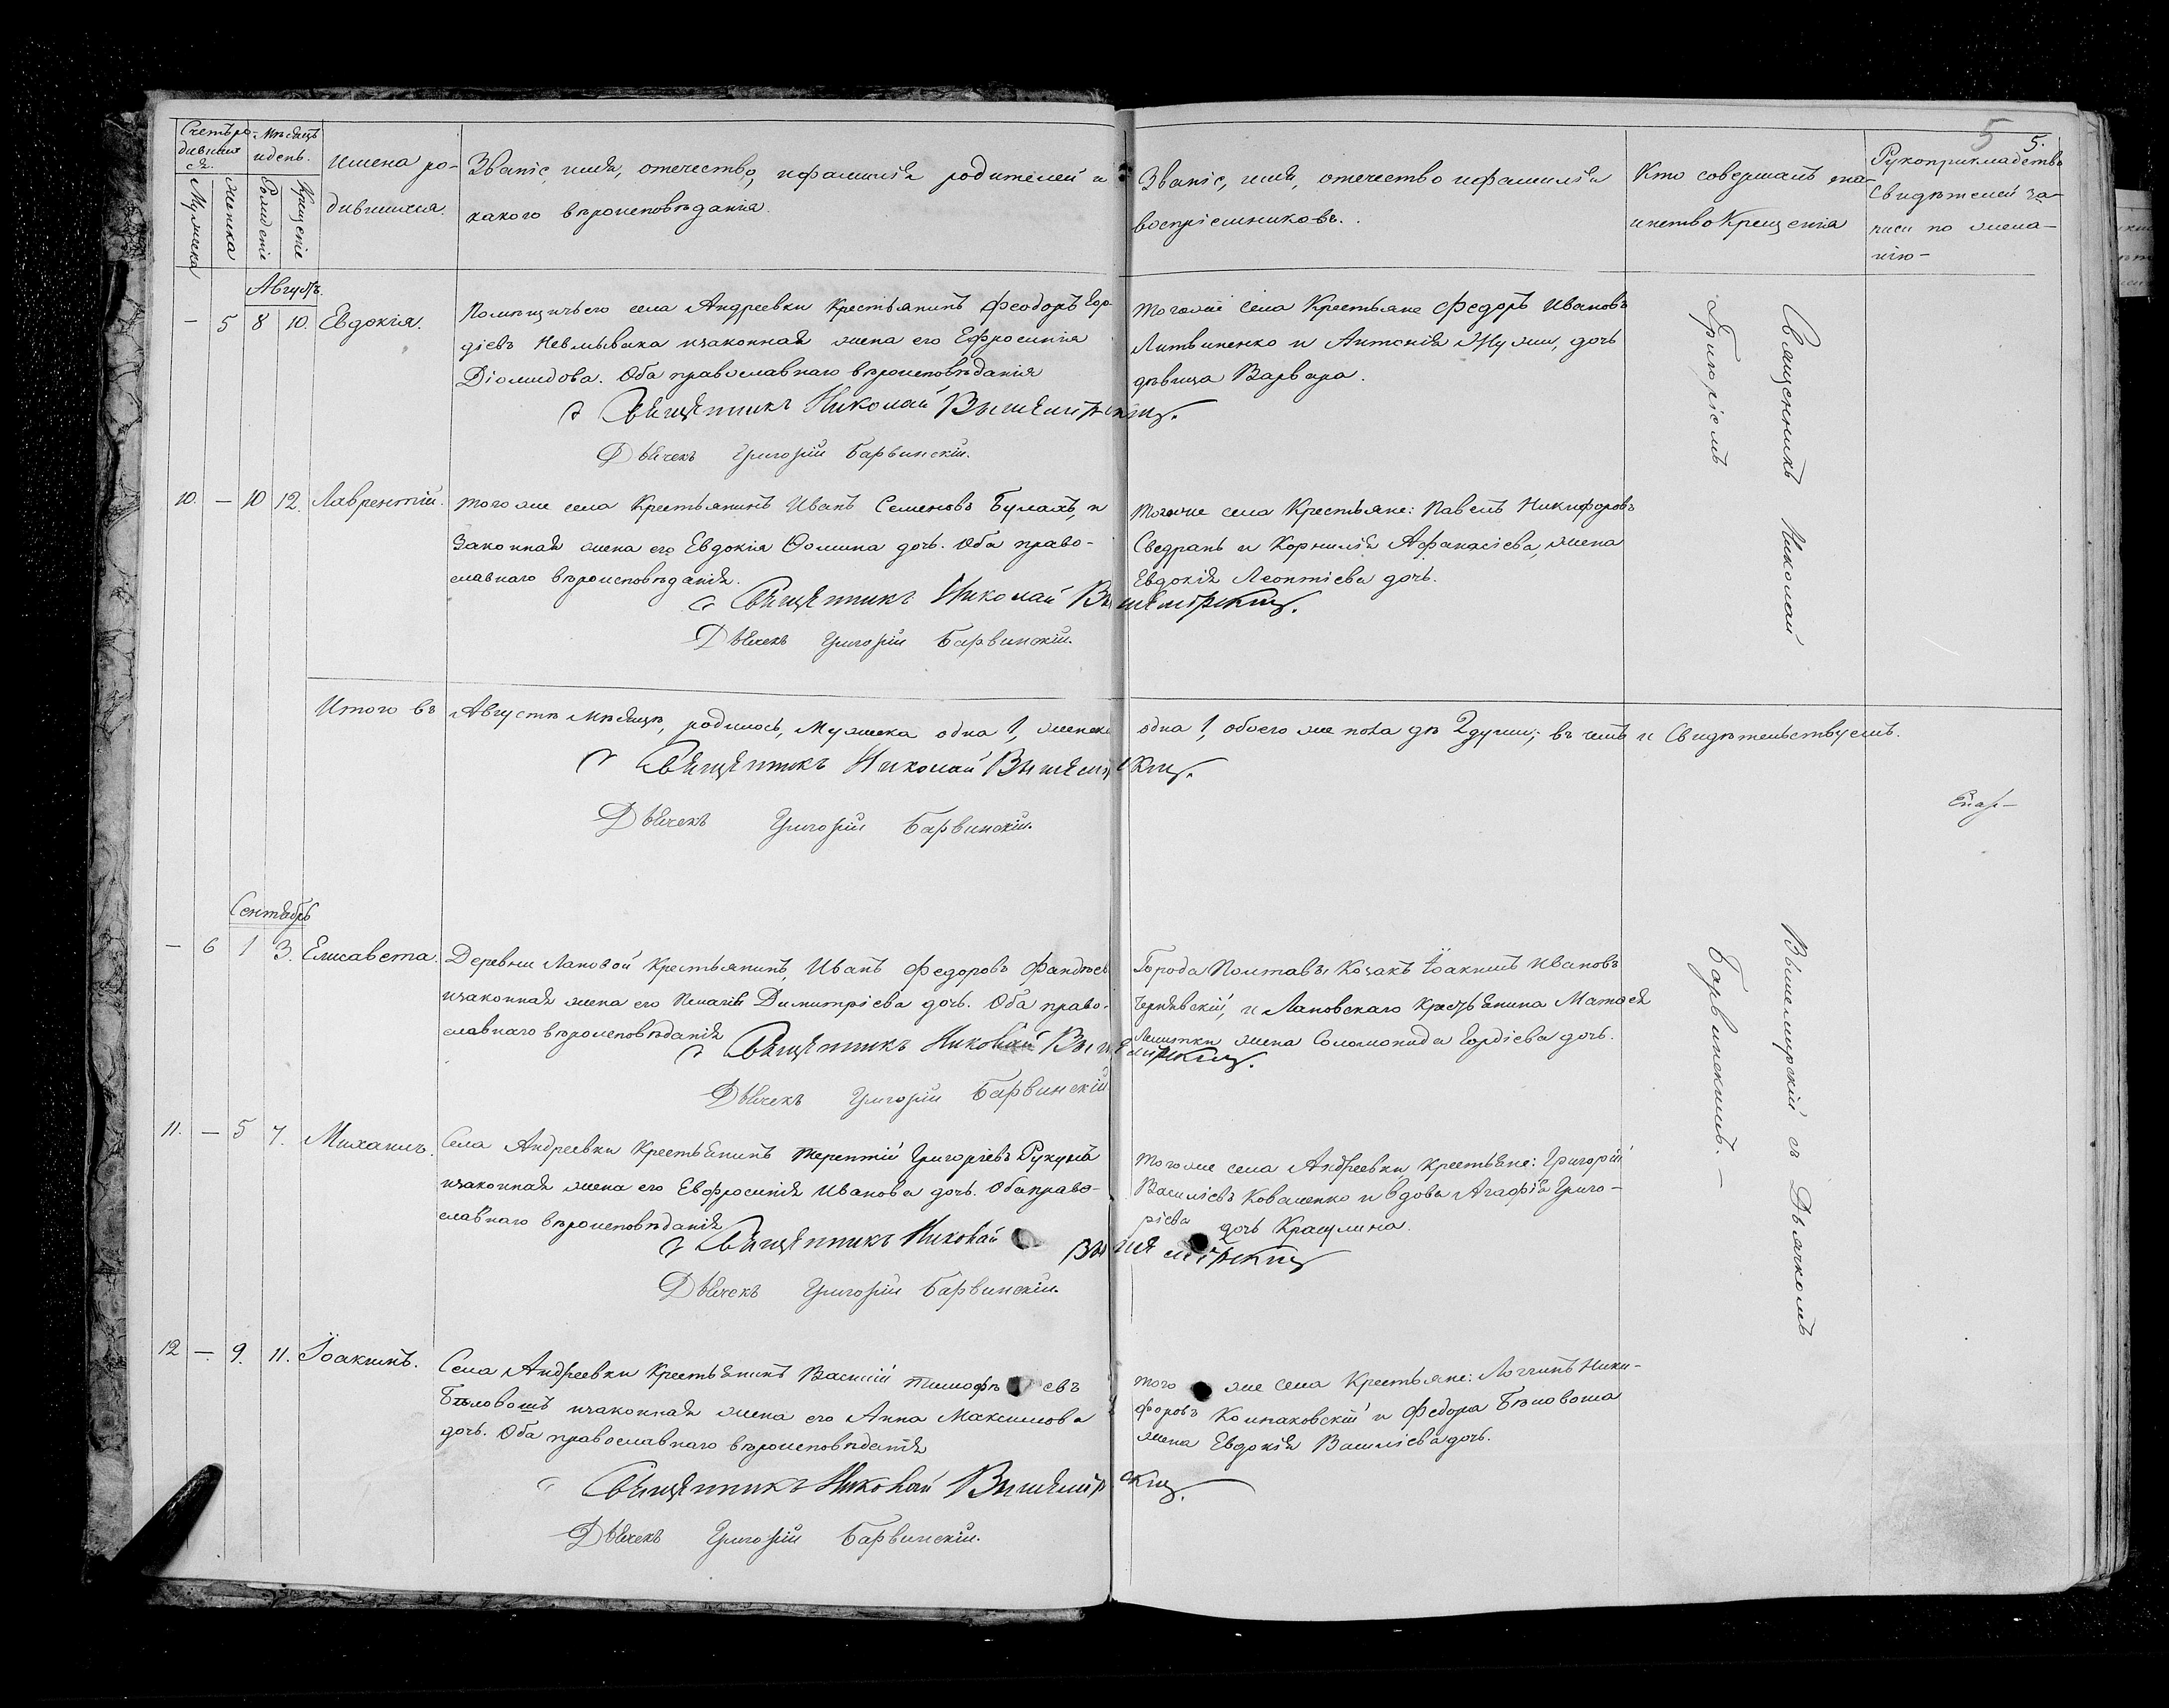 5
5.
Счетъ ро-
дивших
ся.
Мужеска
Женска
Мѣсяцъ
и день.
Рожденіе
Крещеніе
Имена ро-
дившихся.
Званіе, имя, отечество, и фамилія родителей и
какого вѣроисповѣданія.
Званіе, имя, отечество и фамилія
воспріемниковъ.
Кто совершалъ та-
инство Крещенія
Рукоприкладство
свидѣтелей за-
писи по жела-
нію-
Августъ.
— 5 8 10. Евдокія.
Помѣщичьего села Андреевки Крестьянинъ Феодоръ Гор-
діевъ Невмывака изаконная жена его Ефросинія
Діомидова. Оба православнаго вѣроисповѣданія
Священникъ Николай Вышемірскій.
Дьячекъ Григорій Барвинскій.
Тогоже села Крестьяне Федоръ Ивановъ
Литвиненко и Антонія Жу дочь
дѣвица Варвара.
Священникъ Николай
Григоріемъ
10. — 10 12. Лаврентій.
Того же села Крестьянинъ Иванъ Семеновъ Булахъ, и
Законная жена его Евдокія Ѳомина дочь. Оба право-
славнаго вѣроисповѣданія.
Священникъ Николай Вышемірскій.
Дьячекъ Григорій Барвинскій.
Тогоже села Крестьяне: Павелъ Никифоровъ
Сведранъ и Корнилія Афанасіева, жена
Евдокія Леонтіева дочь.
Итого въ Августѣ мѣсяцѣ, родилось, Мужеска одна 1, женска одна 1, обоего же пола дѣ 2 души; въ чемъ и Свидѣтельствуемъ.
Священникъ Николай Вышемірскій.
Дьячекъ Григорій Барвинскій.
Сентябрь
— 6 1 3. Елисавета.
Деревни Лановой Крестьянинъ, Иванъ Федоровъ
изаконная жена его Димитріева дочь. Оба право-
славнаго вѣроисповѣданія
Священникъ Николай Вышемірскій.
Дьячекъ Григорій Барвинскій
Города Полтавы Козакъ Іоакимъ Ивановъ
Чернявскій, и Лановскаго Крестьянина Матѳея
жена Соломонида Гордіева дочь.
Вышемирскій съ Дьячкомъ
Барвинскимъ. —
11. — 5 7. Михаилъ.
Села Андреевки Крестьянинъ Терентій Григоріевъ
изаконная жена его Евфросинія Иванова дочь. Оба право-
славнаго вѣроисповѣданія
Священникъ Николай Вышемірскій
Дьячекъ Григорій Барвинскій.
Тогоже села Андреевки Крестьяне: Григорій
Василіевъ Коваленко и вдова Агафія Григо-
ріева дочь
12 — 9. 11. Іоакимъ.
Села Андреевки Крестьянинъ Василій Тимофѣевъ
Бѣловошъ изаконная жена его Анна Максимова
дочь. Оба православнаго вѣроисповѣданія
Священникъ Николай Вышемірскій.
Дьячекъ Григорій Барвинскій.
того же села Крестьяне: Логгинъ Ники-
форовъ Колпаковскій и Федора Бѣловоша
жена Евдокія Василіева дочь.